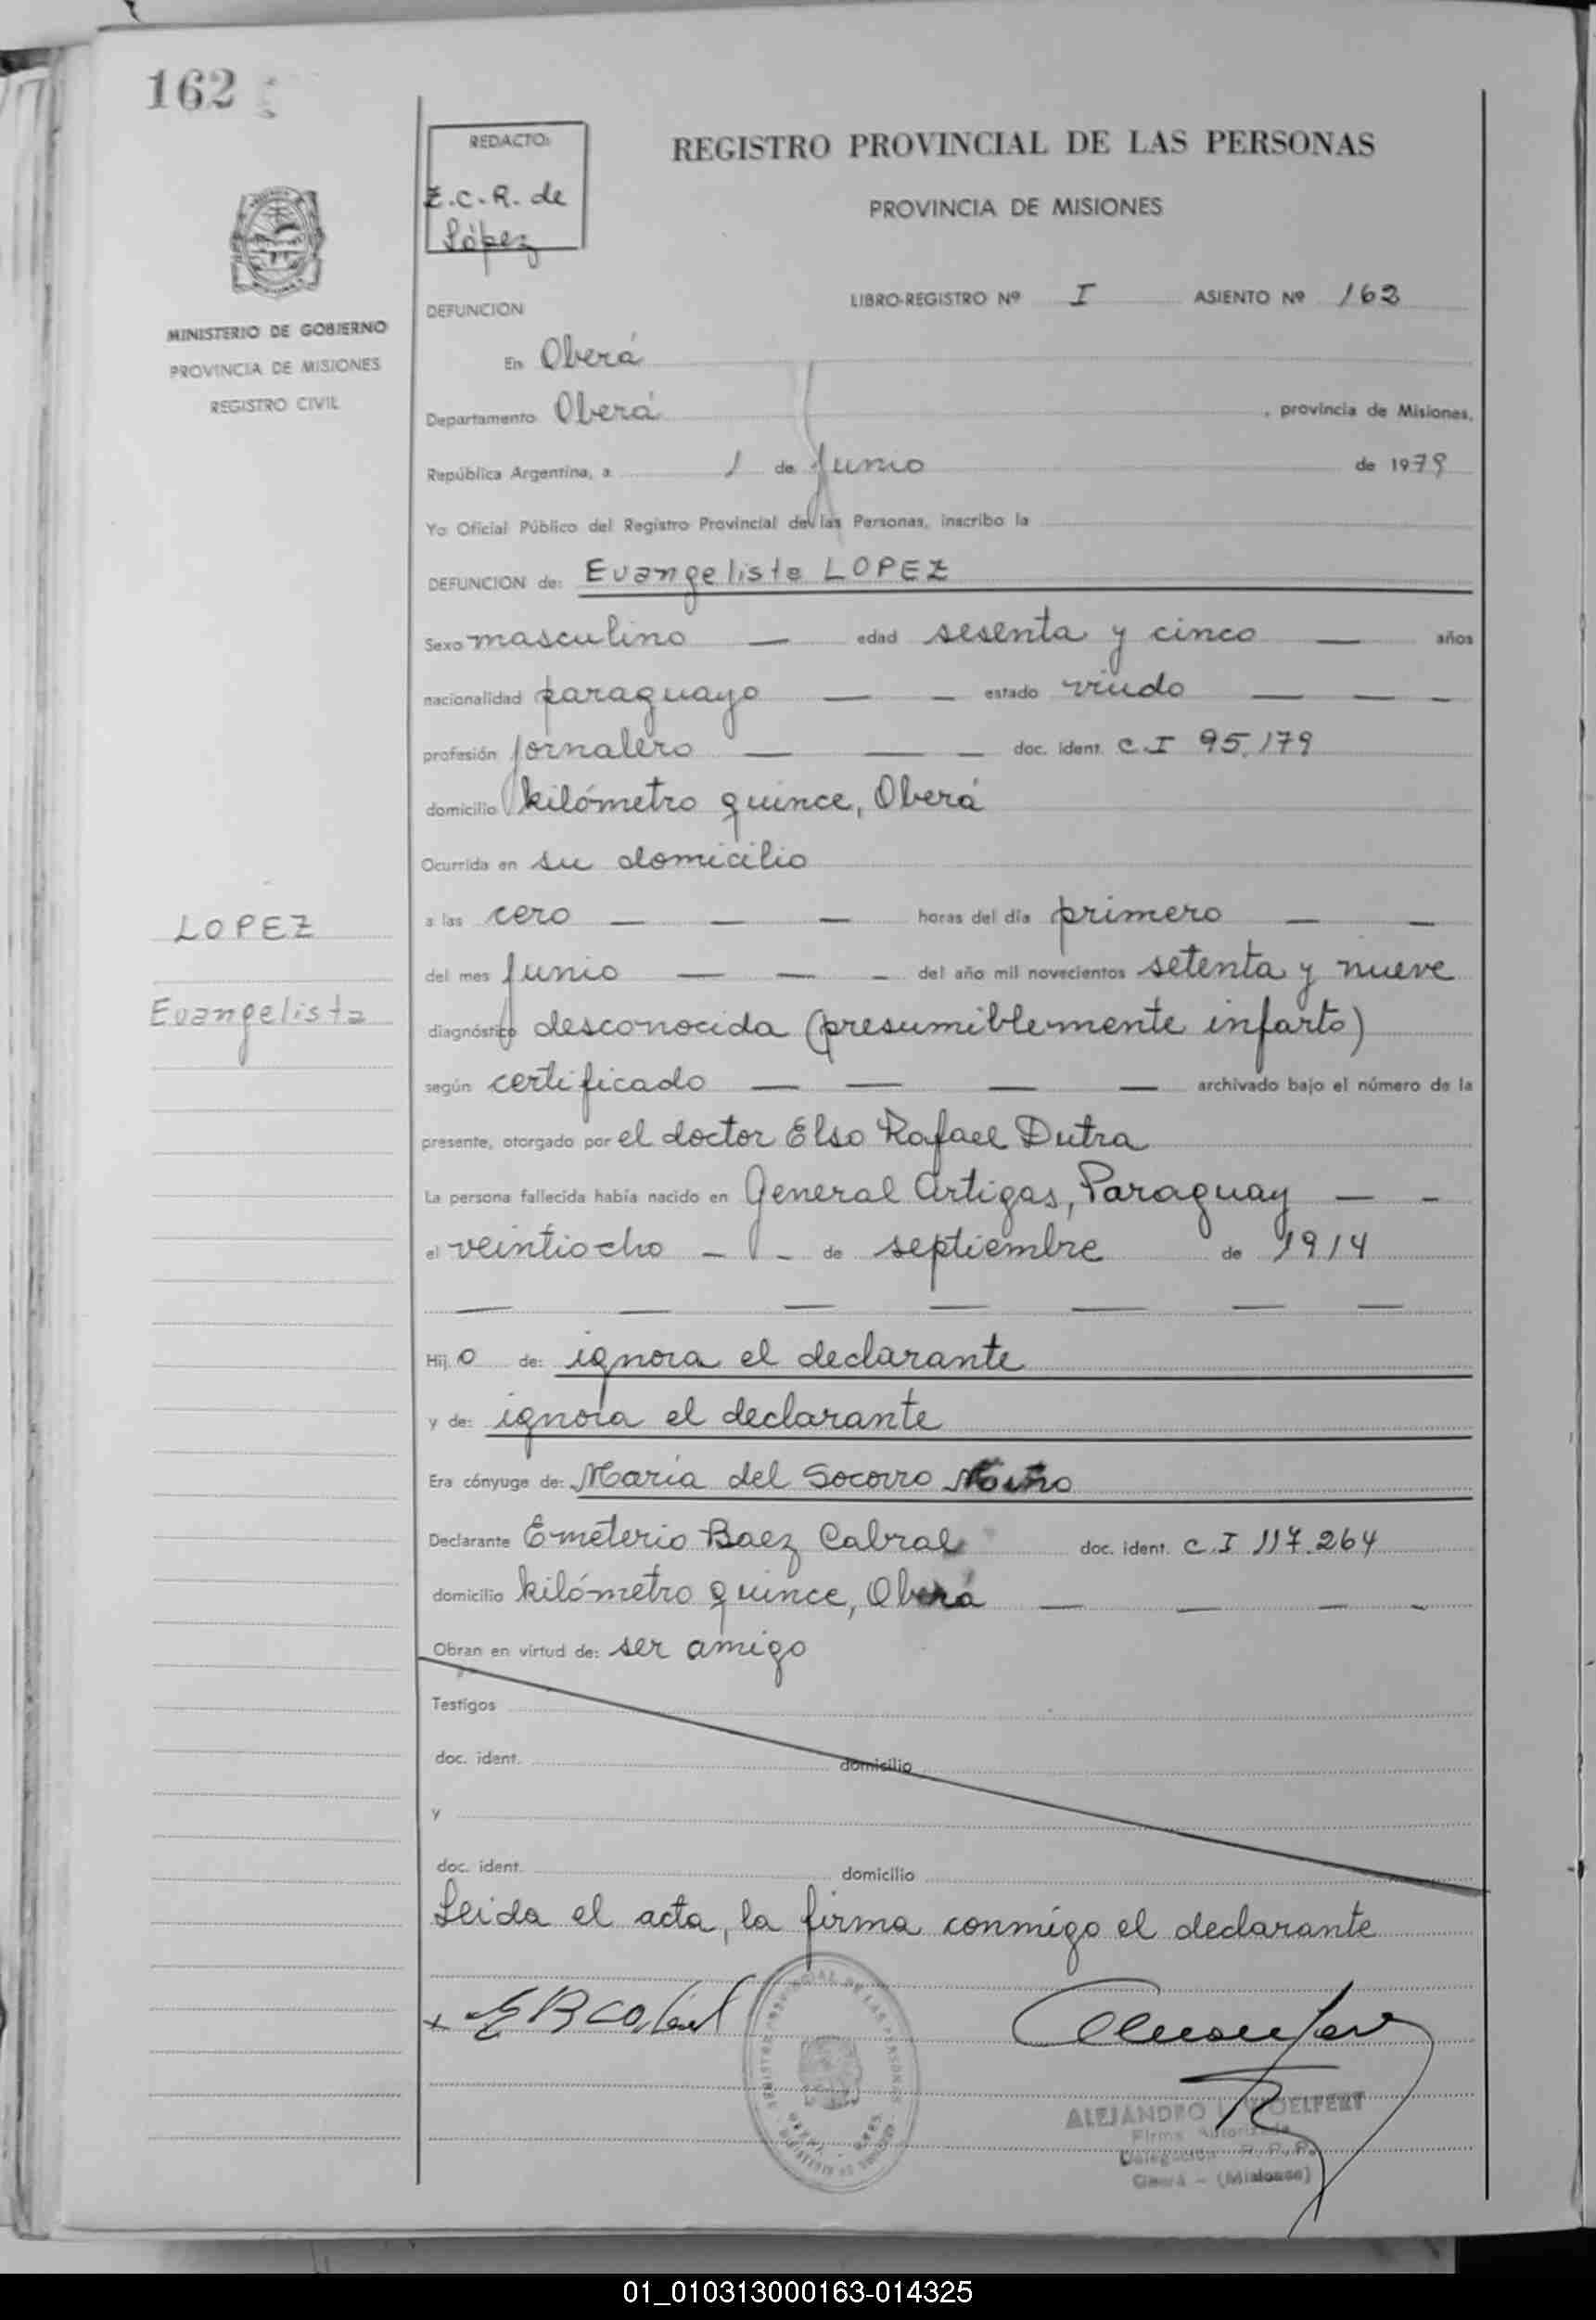 162
REDACTO:
Z.C.R. de
López
REGISTRO PROVINCIAL DE LAS PERSONAS
PROVINCIA DE MISIONES
MINISTERIO DE GOBIERNO
PROVINCIA DE MISIONES
REGISTRO CIVIL
LIBRO-REGISTRO Nº I ASIENTO Nº 162
DEFUNCION
En Oberá
Departamento Oberá , provincia de Misiones,
República Argentina, a 1 de Junio de 1979
Yo Oficial Público del Registro Provincial de las Personas, inscribo la
DEFUNCION de: Evangelista LOPEZ
Sexo masculino — edad sesenta y cinco — años
nacionalidad paraguayo — — estado viudo — — —
profesión jornalero — — — doc. ident. C.I 95.179
domicilio kilómetro quince, Oberá
Ocurrida en su domicilio
a las cero — — — horas del día primero — —
del mes Junio — — — del año mil novecientos setenta y nueve
diagnóstico desconocida (presumiblemente infarto)
según certificado — — — — archivado bajo el número de la
presente, otorgado por el doctor Elso Rafael Dutra
La persona fallecida había nacido en General Artigas, Paraguay — —
el veintiocho — — de septiembre de 1914
— — — — — — —
Hijo de: ignora el declarante
y de: ignora el declarante
Era cónyuge de: María del Socorro
Declarante Emeterio Baez Cabral doc. ident. C.I 117.264
domicilio kilómetro quince, Oberá — — — —
Obran en virtud de: ser amigo
Testigos
doc. ident. domicilio
y
doc. ident. domicilio
Leida el acta, la firma conmigo el declarante
LOPEZ
Evangelista
ALEJANDRO
Firma Autorizada
Delegación R. P. P.
Oberá - (Misiones)
01_010313000163-014325